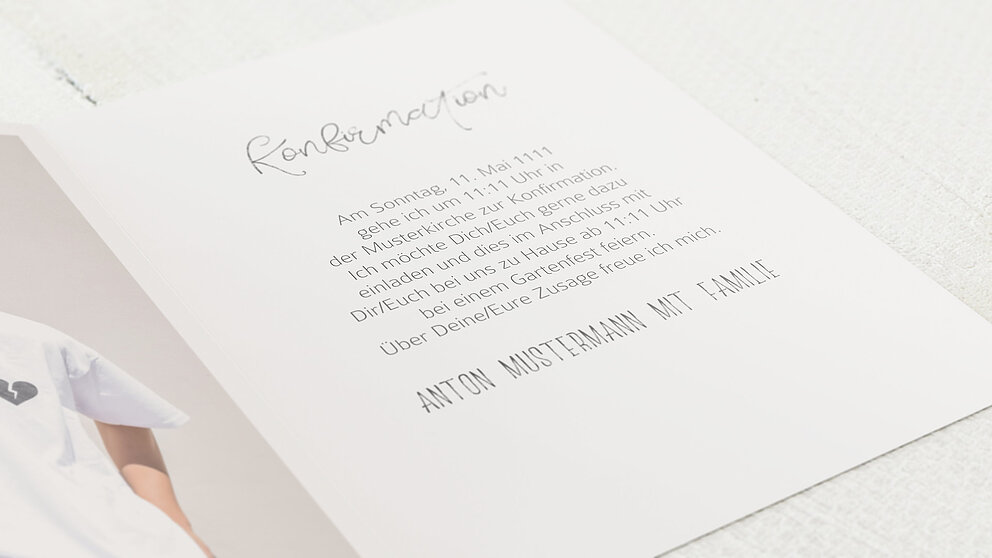 Konfirmation
Am Sonntag, 11. Mai 1111
gehe ich um 11:11 Uhr in
der Musterkirche zur Konfirmation.
Ich möchte Dich/Euch gerne dazu
einladen und dies im Anschluss mit
Dir/Euch bei uns zu Hause ab 11:11 Uhr
bei einem Gartenfest feiern.
Über Deine/Eure Zusage freue ich mich.
ANTON MUSTERMANN MIT FAMILIE